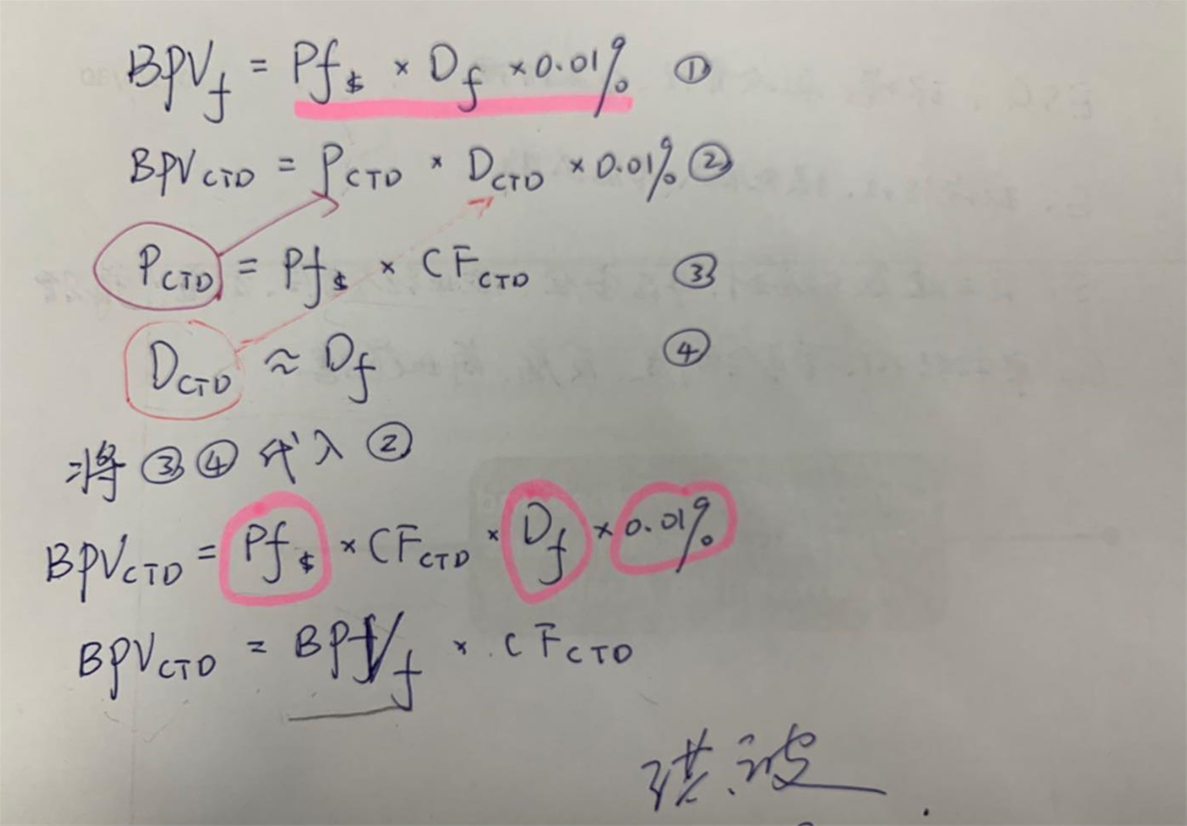 BPV_f = Pf_$ × D_f × 0.01% ①
BPV_CTD = P_CTD × D_CTD × 0.01% ②
P_CTD = Pf_$ × CF_CTD ③
D_CTD ≈ D_f ④
将 ③ ④ 代入 ②
BPV_CTD = Pf_$ × CF_CTD × D_f × 0.01%
BPV_CTD = BPV_f × CF_CTD